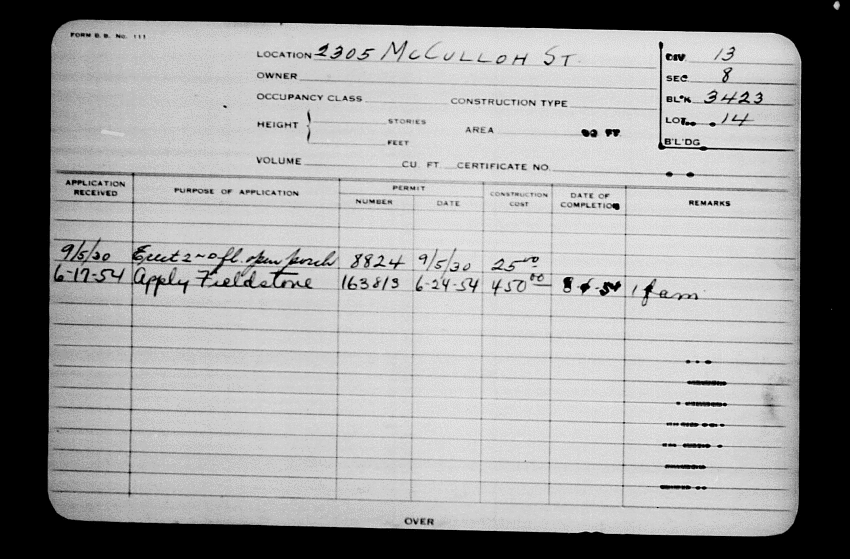 FORM B. B. No. 111
LOCATION 2305 McCULLOH ST.
OWNER
OCCUPANCY CLASS CONSTRUCTION TYPE
HEIGHT } STORIES AREA SQ FT.
FEET
VOLUME CU. FT. CERTIFICATE NO.
DIV 13
SEC 8
BL'K 3423
LOT 14
B'L'DG
APPLICATION RECEIVED PURPOSE OF APPLICATION PERMIT NUMBER DATE CONSTRUCTION COST DATE OF COMPLETION REMARKS
9/5/30 Erect 2nd fl. open porch 8824 9/5/30 25 00
6-17-54 Apply Fieldstone 163813 6-24-54 450 00 1 fam
OVER